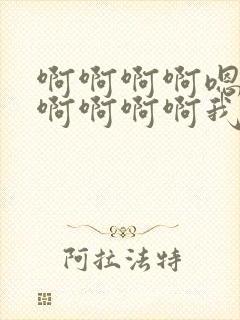 啊啊啊啊嗯
啊啊啊啊我
阿拉法特